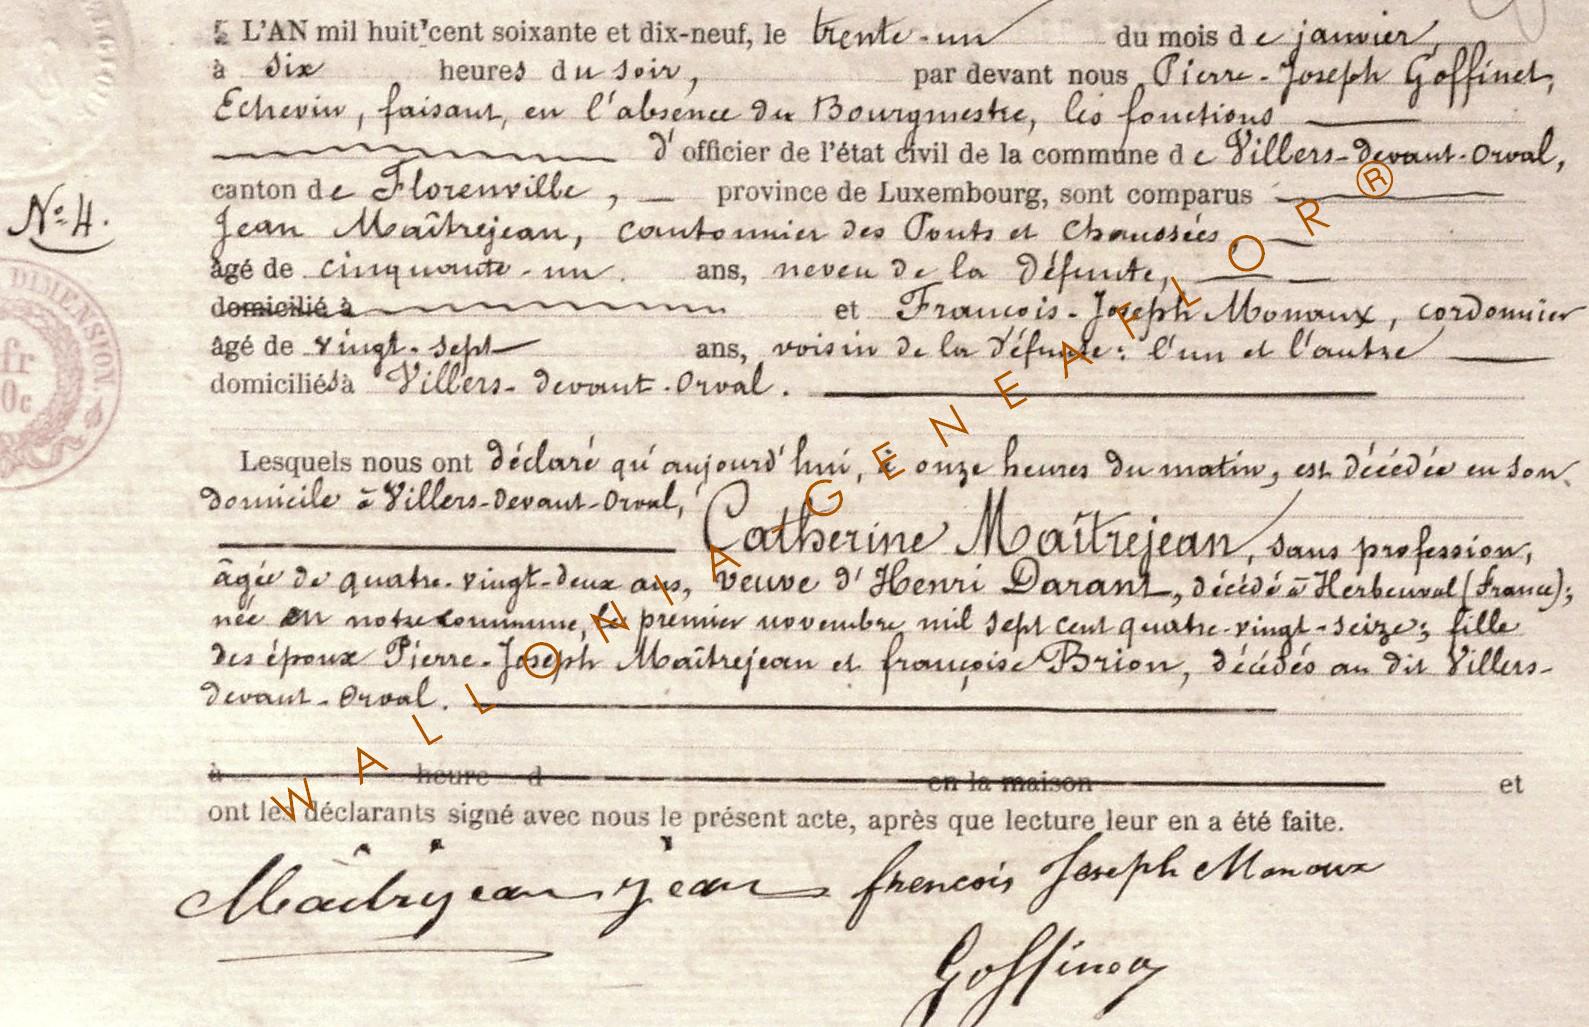 L'AN mil huit cent soixante et dix-neuf, le trente-un du mois de janvier,
à six heures du soir, par devant nous Pierre-Joseph Goffinet,
Echevin, faisant, en l'absence du Bourgmestre, les fonctions
d'officier de l'état civil de la commune de Villers-devant-Orval,
canton de Florenville, province de Luxembourg, sont comparus
N° 4.
Jean Maîtrejean, cantonnier des Ponts et Chaussées,
âgé de cinquante-un ans, neveu de la défunte,
domicilié à et François-Joseph Monaux, cordonnier
âgé de vingt-sept ans, voisin de la défunte: l'un et l'autre
domiciliés à Villers-devant-Orval.
DIMENSION
fr
0c
Lesquels nous ont déclaré qu'aujourd'hui, à onze heures du matin, est décédée en son
domicile à Villers-devant-Orval,
Catherine Maîtrejean, sans profession,
âgée de quatre-vingt-deux ans, veuve d'Henri Darant, décédé à Herbeuval (France);
née en notre commune, le premier novembre mil sept cent quatre-vingt-seize; fille
des époux Pierre-Joseph Maîtrejean et françoise Brion, décédés au dit Villers-
devant-Orval.
à heure d en la maison et
ont les déclarants signé avec nous le présent acte, après que lecture leur en a été faite.
Maîtrejean jean francois Joseph Monaux
Goffinet
WALLONIA-GENEAFLOR®